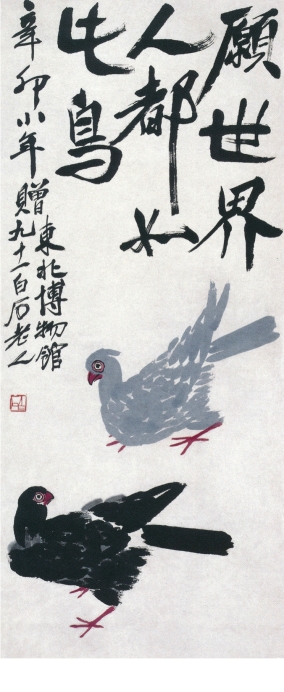 願世界
人都如
此鳥
辛卯小年贈東北博物館
九十一白石老人